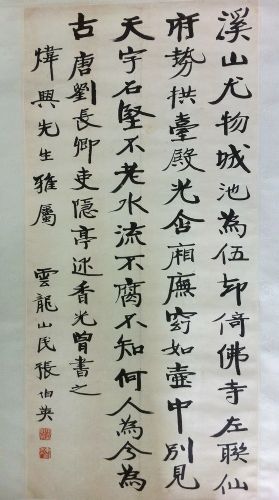 溪山尤物城池為伍卻倚佛寺左聯仙
府勢拱臺殿光含廂廡窈如壺中別見
天宇石堅不老水流不腐不知何人為今為
古唐劉長卿吏隱亭述香光曾書之
煒興先生雅屬 雲龍山民張伯英